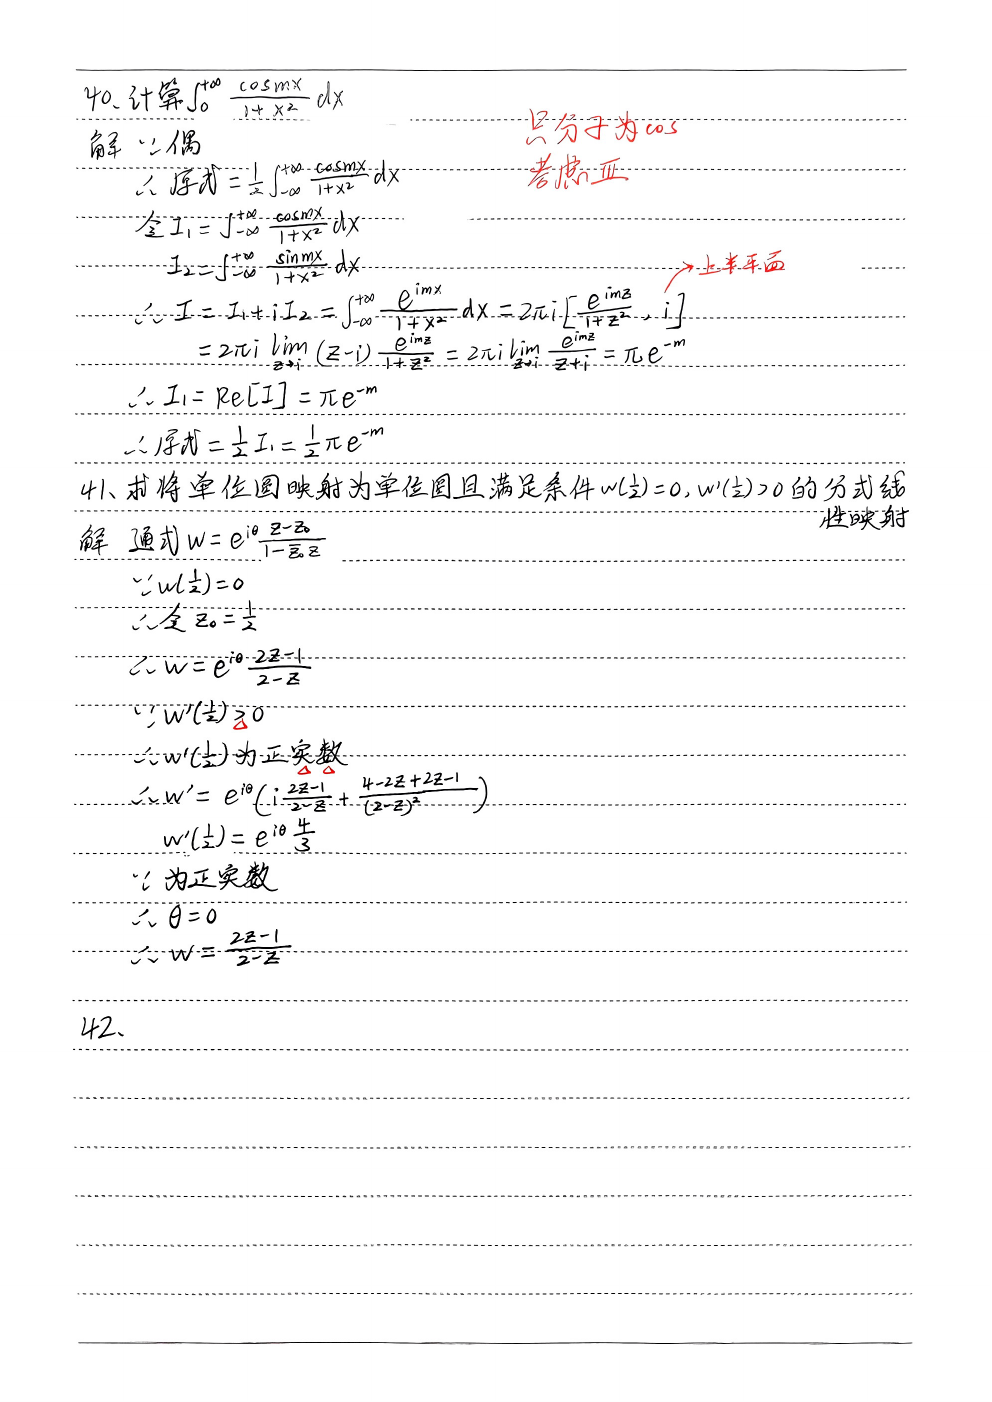 40、计算∫₀^{+∞} cosmx/(1+x²) dx
只分子为cos
考虑 Ⅲ
解 ∵偶
∴原式=1/2∫_{-∞}^{+∞} cosmx/(1+x²) dx
令I₁=∫_{-∞}^{+∞} cosmx/(1+x²) dx
I₂=∫_{-∞}^{+∞} sinmx/(1+x²) dx
→上半平面
∴ I = I₁+iI₂ = ∫_{-∞}^{+∞} e^{imx}/(1+x²) dx = 2πi[e^{imz}/(1+z²), i]
= 2πi lim_{z→i} (z-i) e^{imz}/(1+z²) = 2πi lim_{z→i} e^{imz}/(z+i) = πe^{-m}
∴ I₁ = Re[I] = πe^{-m}
∴原式 = 1/2 I₁ = 1/2 πe^{-m}
41、求将单位圆映射为单位圆且满足条件w(1/2)=0, w'(1/2)>0的分式线
性映射
解 通式 w = e^{iθ} (z-z₀)/(1-z̄₀z)
∵w(1/2)=0
∴令 z₀=1/2
∴ w = e^{iθ} (2z-1)/(2-z)
∵ w'(1/2)>0
∴w'(1/2)为正实数
∴w' = e^{iθ}(i (2z-1)/(2-z) + (4-2z+2z-1)/(2-z)²)
w'(1/2) = e^{iθ} 4/3
∵ 为正实数
∴ θ=0
∴ w = (2z-1)/(2-z)
42、